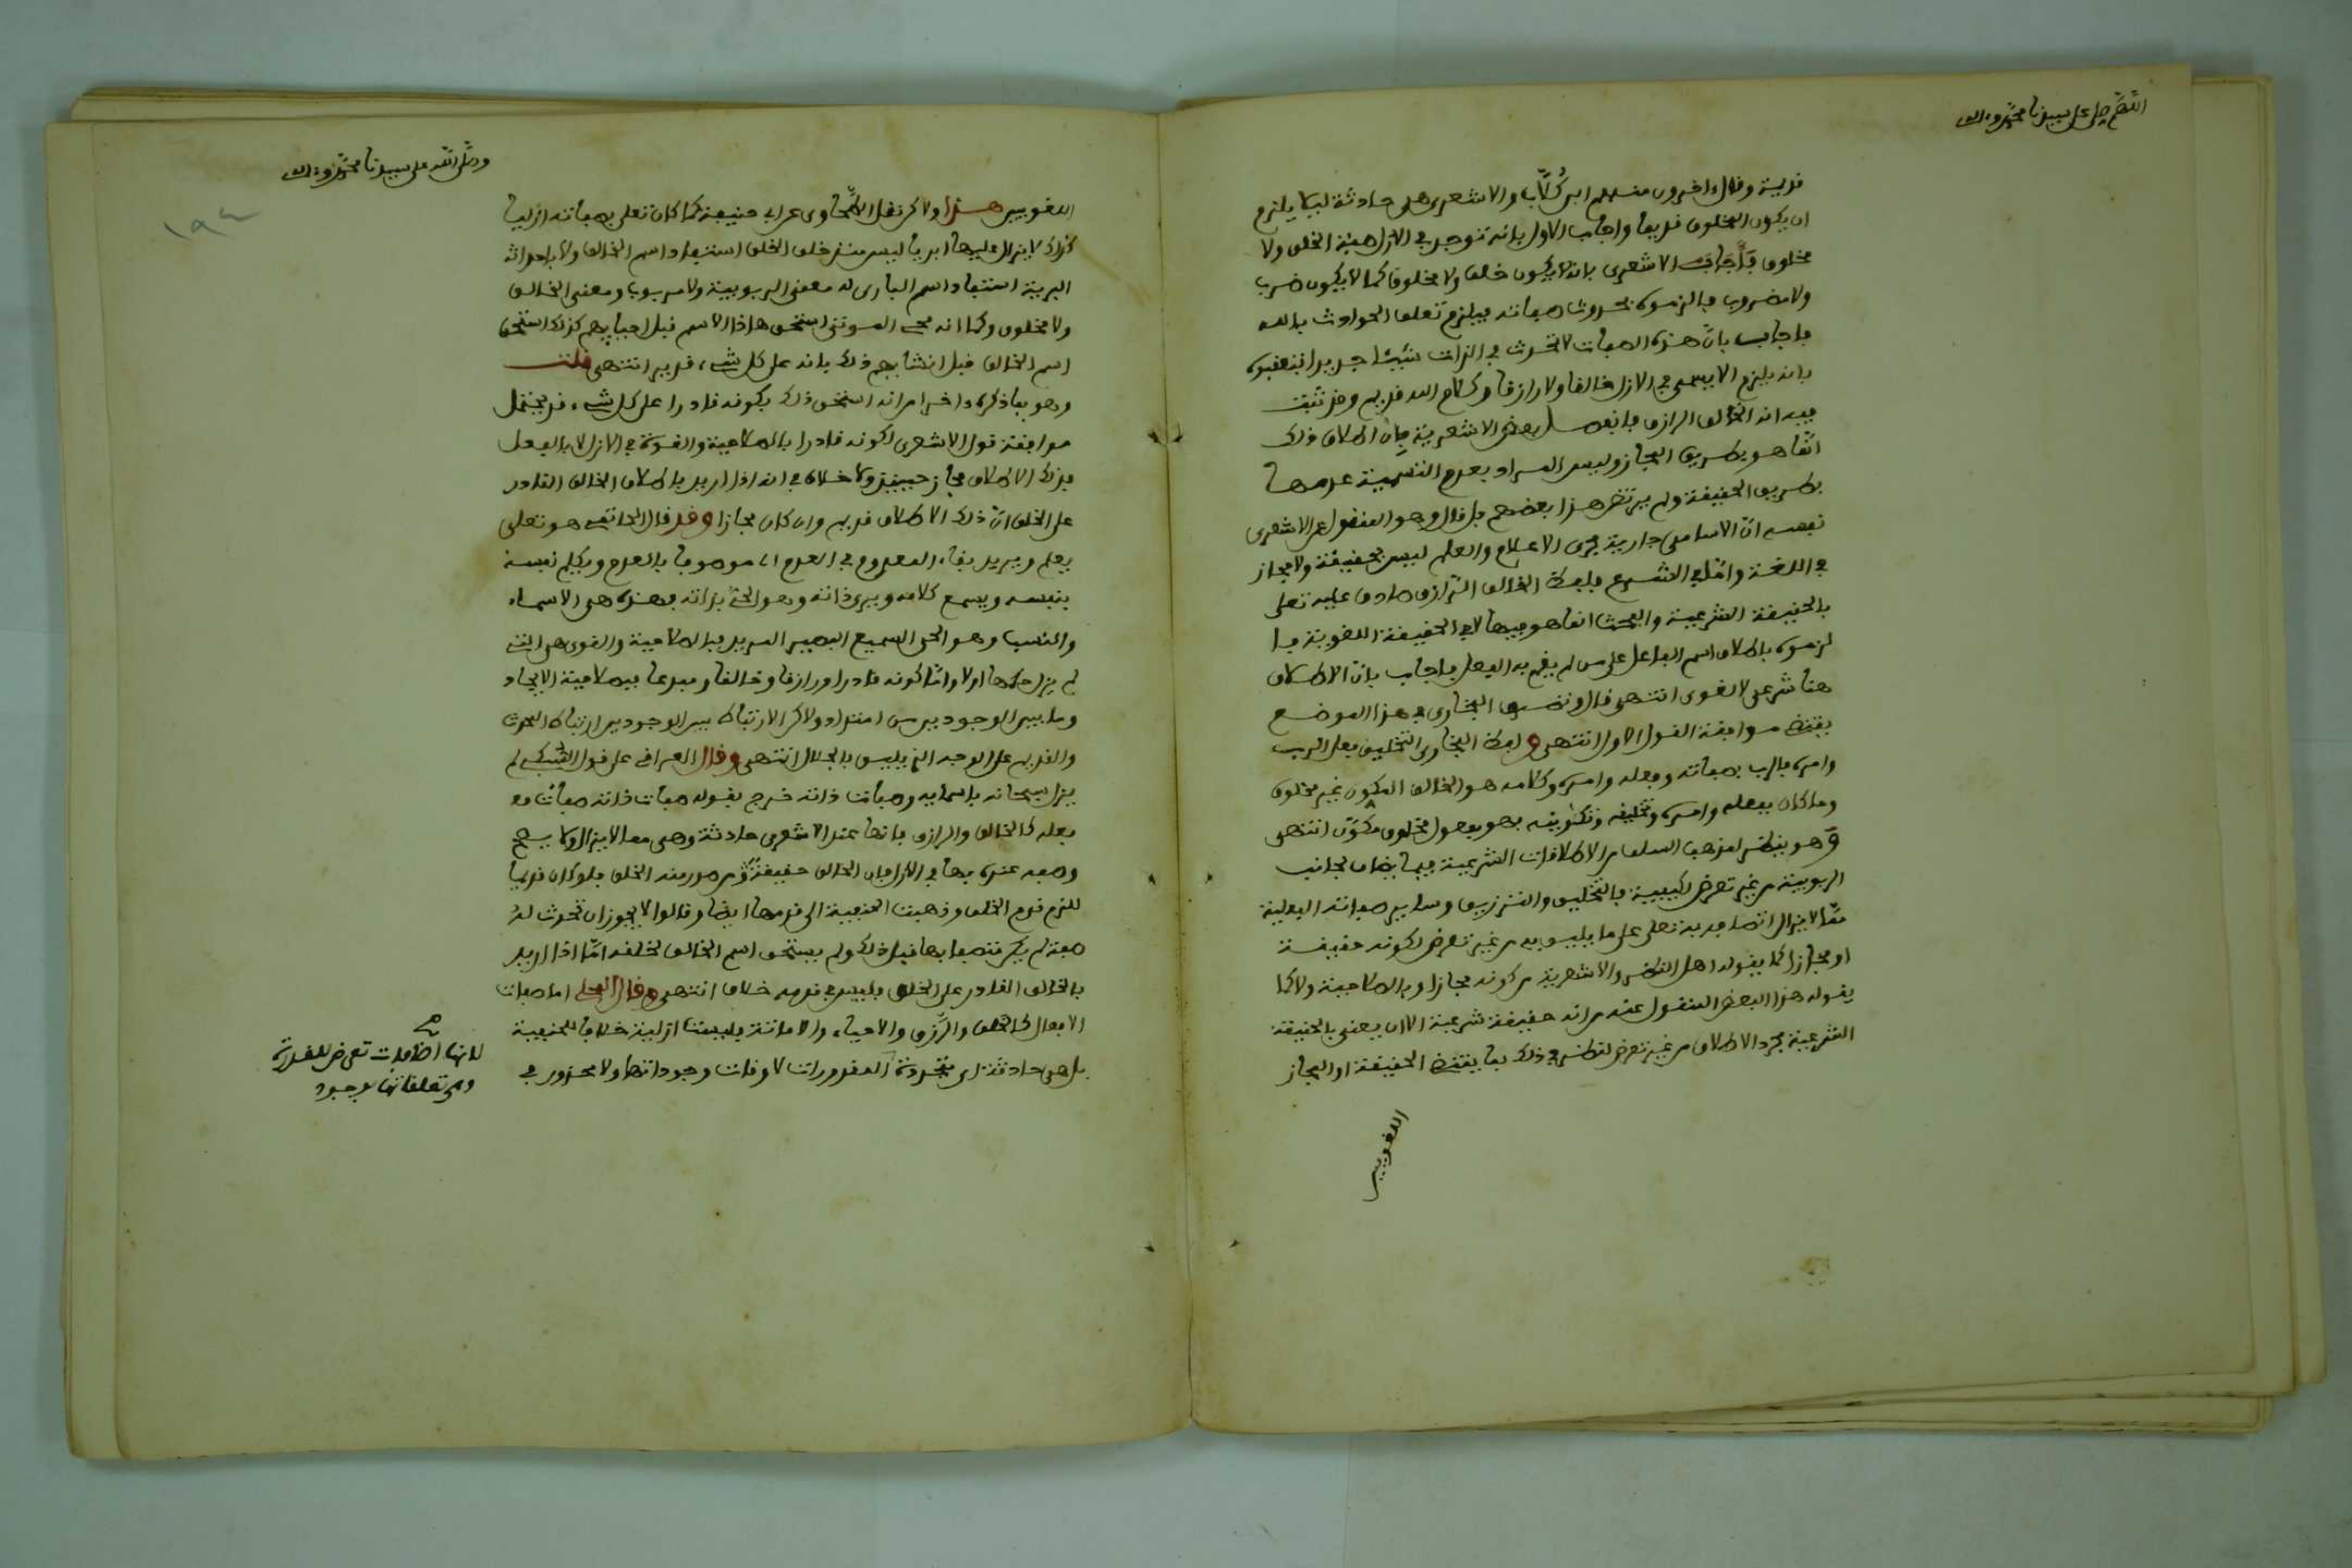 اللهم صل على سيدنا محمد وءاله
قديمة وقال ءاخرون منهم ابن كُلّاب والاشعرى هى حادثة ليلا يلزم
ان يكون المخلوق قديما واجاب الاول بانه توجد في الازل صفة الخلق ولا
مخلوق فأجاب الاشعرى بانه لا يكون خلق ولا مخلوق كما لا يكون ضرب
ولا مضروب فالزموه بحدوث صفاته فيلزم تعلق الحوادث بالله
فاجاب بانّ هذه الصفات لا تحدث في الذات شيئا جديدا فتعقبوه
بانه يلزم الا يسمى في الازل خالقا ولا رازقا وكلام الله قديم وقد ثبت
فيه انه الخالق الرازق فانفصل بعض الاشعرية بان اطلاق ذلك
انما هو بطريق المجاز وليس المراد بعدم التسمية عدمها
بطريق الحقيقة ولم يرتض هذا بعضهم بل قال وهو المنقول عن الاشعرى
نفسه انّ الاسامى جارية مجرى الاعلام والعلم ليس بحقيقة ولا مجاز
في اللغة وامّا في الشرع فلفظ الخالق الرّازق صادق عليه تعلى
بالحقيقة الشرعية والبحث انما هو فيها لا في الحقيقة اللغوية فا
لزموه باطلاق اسم الفاعل على من لم يقم به الفعل فاجاب بانّ الاطلاق
هنا شرعى لا لغوى انتهى قال وتصرف البخارى في هذا الموضع
يقتضى موافقة القول الاول انتهى ولفظ البخارى التخليق فعل الرب
وامره فالرب بصفاته وفعله وامره وكلامه هو الخالق المكون غير مخلوق
وما كان بفعله وامره وتخليقه وتكوينه فهو مفعول مخلوق مكوّن انتهى
وهو ينظر لمذهب السلف من الاطلاقات الشرعية فيما يضاف لجانب
الربوبية من غير تعرض لكيفية فالتخليق والترزيق وساير صفاته الفعلية
ممّا لا يزال اتصافه به تعلى على ما يليق به من غير تعرض لكونه حقيقة
او مجازا كما يقوله اهل النظر والاشعرية من كونه مجازا وبالصلاحية ولا كما
يقوله هذا البعض المنقول عنه من انه حقيقة شرعية الا ان يعنى بالحقيقة
الشرعية مجرد الاطلاق من غير تعرض لنظر في ذلك بما يقتضى الحقيقة او المجاز
اللغويين
وصلى الله على سيدنا محمد وءاله
اللغويين هذا ولاكن نقل الطّحاوى عن ابى حنيفة كما كان تعلى بصفاته ازليا
كذلك لا يزال عليها ابديا ليس منذ خلق الخلق استفاد اسم الخالق ولا باحداثه
البرية استفاد اسم البارى له معنى الربوبية ولا مربوب ومعنى الخالق
ولا مخلوق وكما انه محي الموتى استحق هاذا الاسم قبل احيايهم كذلك استحق
اسم الخالق قبل انشايهم ذلك بانه على كل شىء قدير انتهى قلت
وهو بما ذكره ءاخرا من انه استحق ذلك بكونه قادرا على كل شىء قد يحتمل
موافقة قول الاشعرى لكونه قادرا بالصلاحية والقوة في الازل لا بالفعل
فذلك الاطلاق مجاز حينئذ ولا خلاف في انه اذا اريد باطلاق الخالق القادر
على الخلق انّ ذلك الاطلاق قديم وان كان مجازا وقد قال الحاتمى هو تعلى
يعلم ويريد بقاء المعدوم في العدم اى موصوفا بالعدم ويكلم نفسه
بنفسه ويسمع كلامه ويرى ذاته وهو الحى بذاته فهذه هى الاسماء
والنسب وهو الحى السميع البصير المريد فبالصلاحية والقوى هى التى
لم يزل حكمها اولا وامّا كونه قادرا ورازقا وخالقا ومبدعا فبصلاحية الايجاد
وما بين الوجودين من امتداد ولاكن الارتباط بين الوجودين ارتباط المحدث
والقديم على الوجه الذى يليق بالجلال انتهى وقال العراقى على قول السّبكى لم
يزل سبحانه باسمايه وصفات ذاته خرج بقوله صفات ذاته صفات فعـ
ـعله كالخالق والرازق فانها عند الاشعرى حادثة وهى مما لا يزال ولا يصح
وصفه عنده بها في الازل فان الخالق حقيقةً من صدر منه الخلق فلو كان قديما
للزم قدم الخلق وذهبت الحنفية الى قدمها ايضا وقالوا لا يجوز ان تحدث له
صفة لم يكن متصفا بها قبل ذلك ولم يستحق اسم الخالق لخلقه امّا اذا اريد
بالخالق القادر على الخلق فليس في قدمه خلاف انتهى وقال المحلى اما صفات
الافعال كالخلق والرّزق والاحياء والاماتة فليست ازلية خلافا للحنفية
بل هى حادثة اى متجددة المقدورات لاوقات وجوداتها ولا محذور في
لانها اضافات تعرض للقدرة
وهى تعلقاتها بوجود